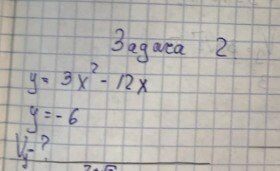 Задача 2.
y = 3x² - 12x
y = -6
Vy - ?